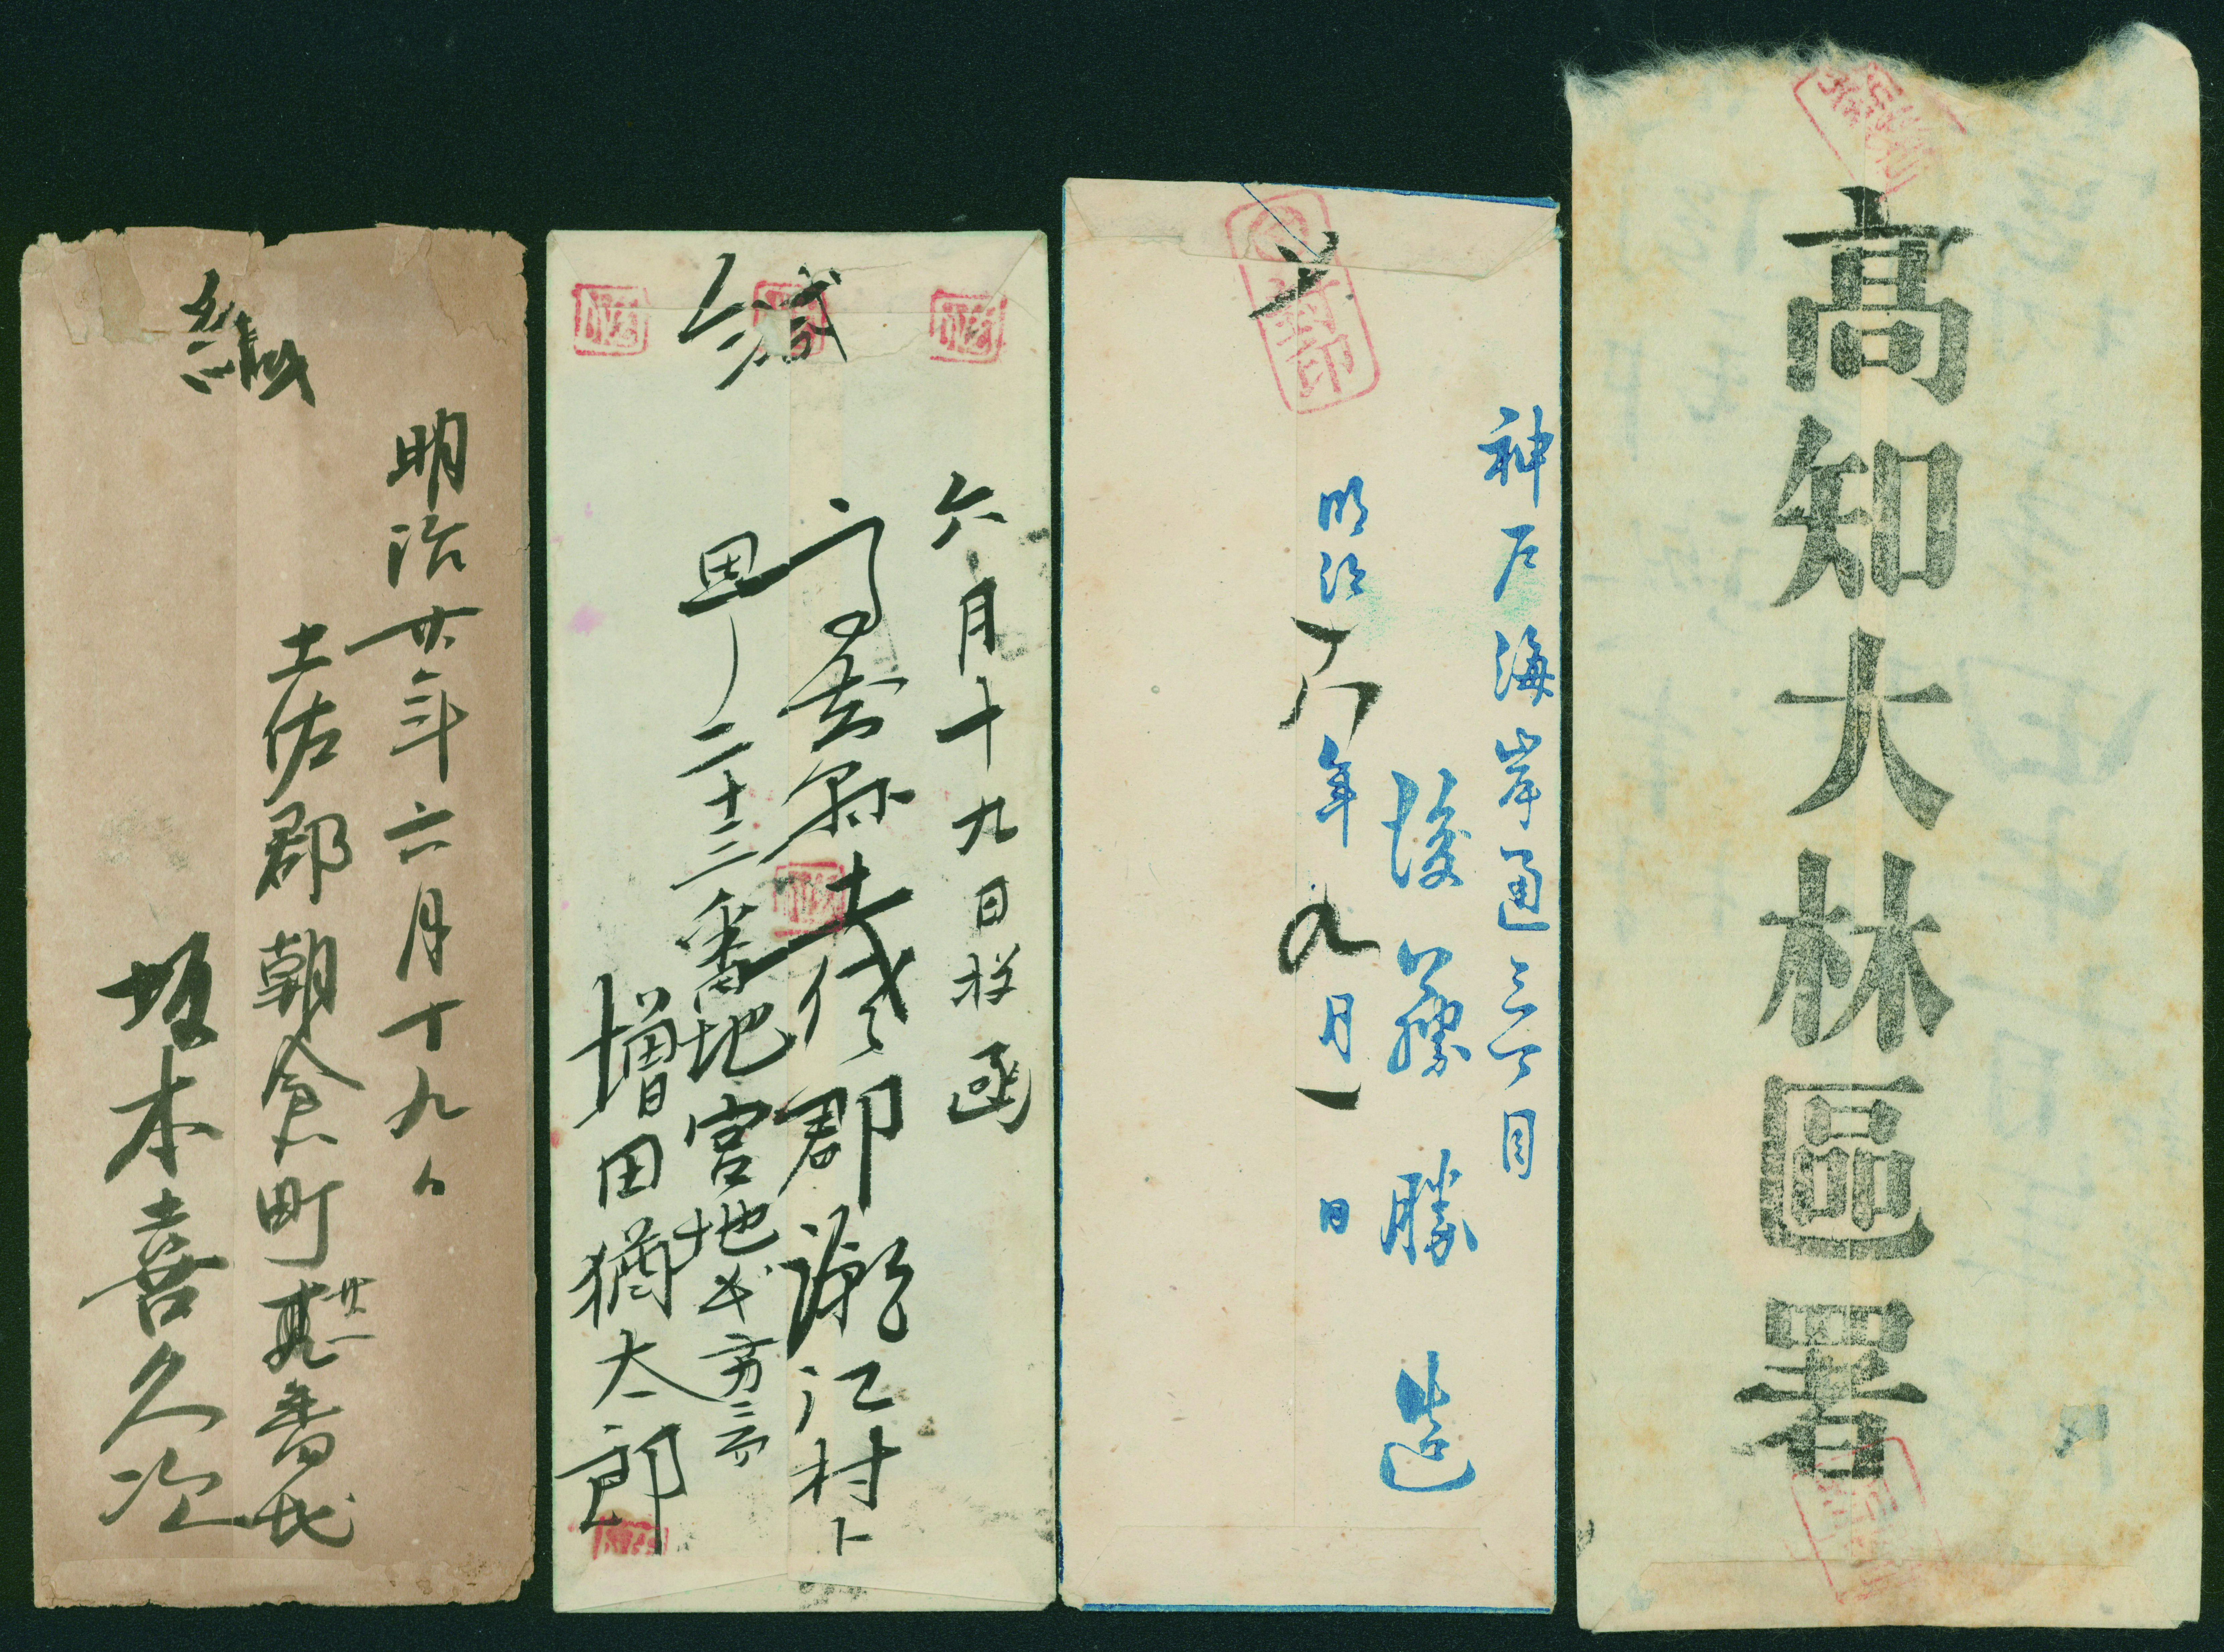 高知大林區署
神戸海岸通三丁目
後藤勝造
明治十八年九月一日
封印
六月十九日投函
高知縣土佐郡潮江村
二十三番地宮地
増田猶太郎
緘
明治廿年六月十九日
土佐郡朝倉町
坂本喜久次
緘